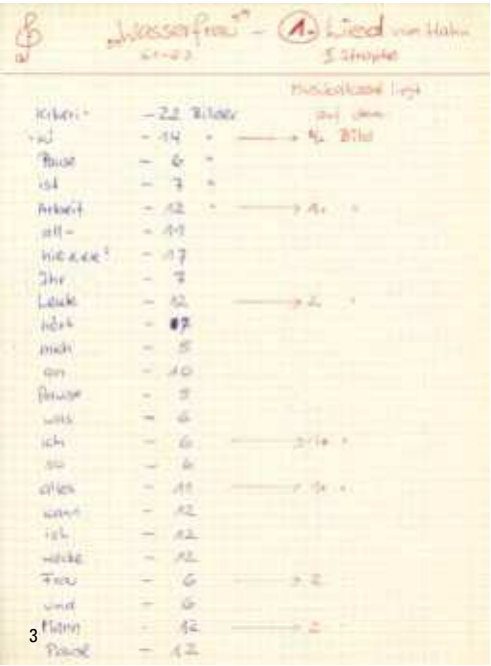 „Wasserfrau" – 1. Lied von Hahn
I. Strophe
Musikakzent liegt
auf dem
Kikeri- – 22 Bilder
-ki – 14 " → Bild
Pause – 6 "
ist – 7 "
Arbeit – 12 " → 1. "
all- – 11
hieeee! – 17
Ihr – 7
Leute – 12 → 2. "
hört – 7
mich – 5
an – 10
Pause – 5
was – 6
ich – 6 →
so – 6
alles – 11 → 1. "
kann – 12
ich – 12
wecke – 12
Frau – 6 → 2
und – 6
Mann – 12 → 2
Pause – 12
3